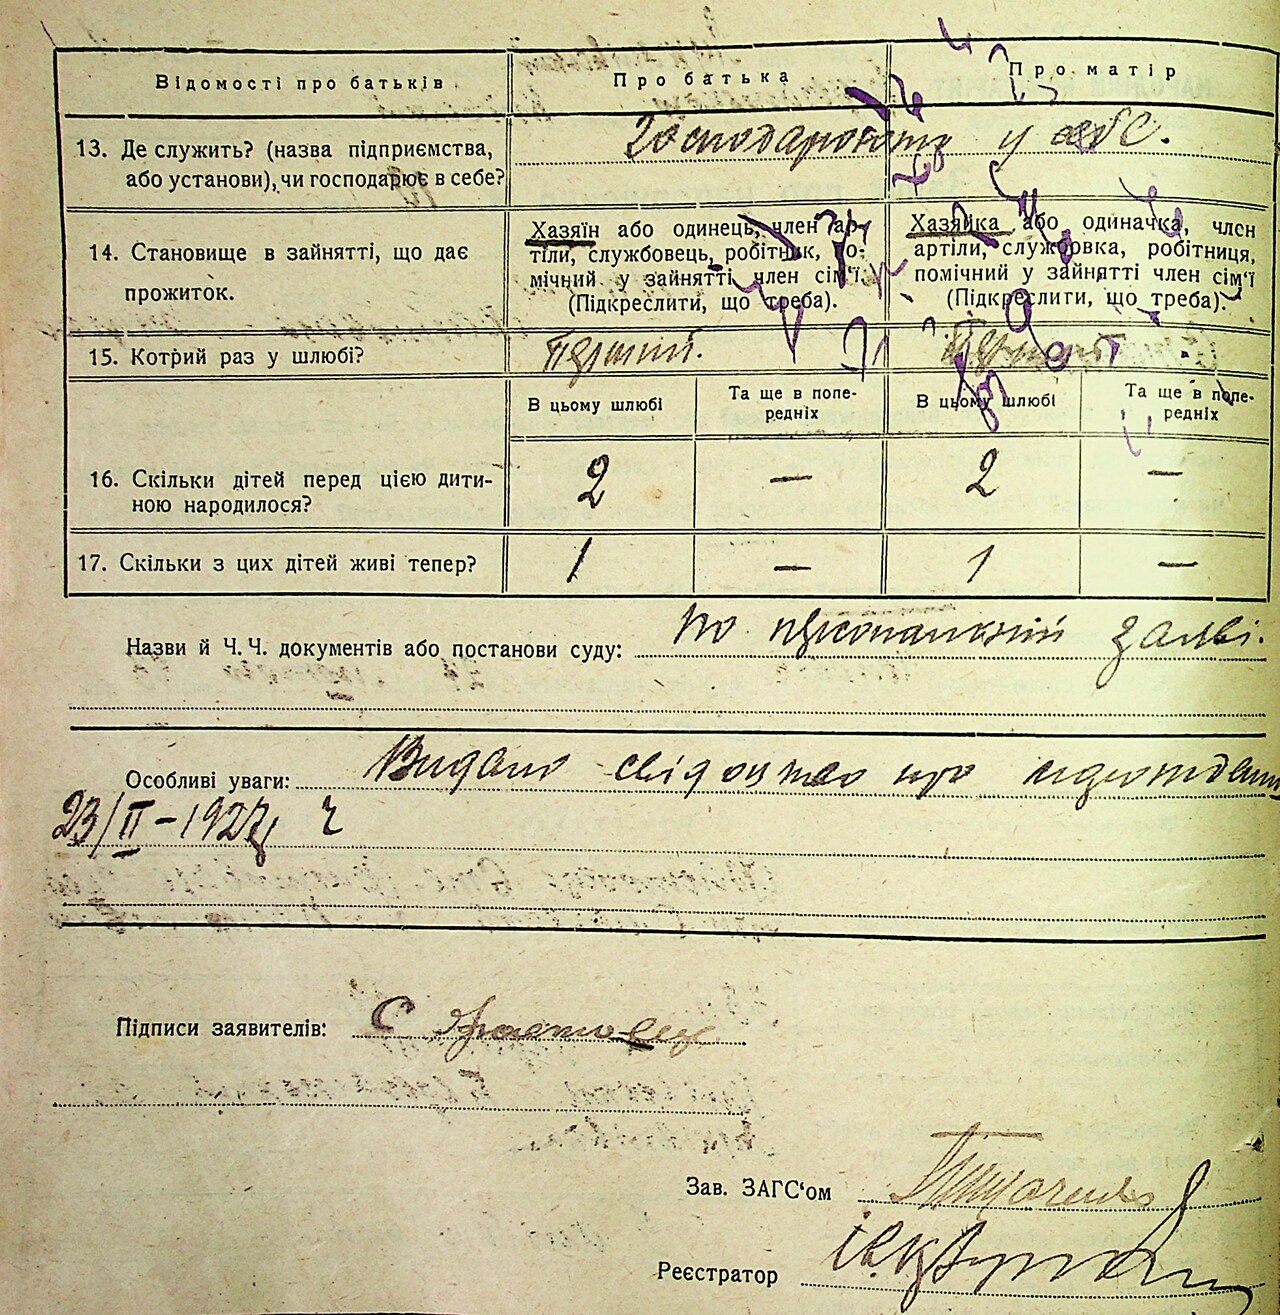 Відомості про батьків
Про батька
Про матір
13. Де служить? (назва підприємства,
або установи), чи господарює в себе?
Господарюють у себе.
14. Становище в зайнятті, що дає
прожиток.
Хазяїн або одинець, член ар-
тіли, службовець, робітник, по-
мічний у зайнятті член сім'ї.
(Підкреслити, що треба).
Хазяйка або одиначка, член
артіли, службовка, робітниця,
помічний у зайнятті член сім'ї
(Підкреслити, що треба).
15. Котрий раз у шлюбі?
Перший.
В цьому шлюбі
Та ще в попе-
редніх
В цьому шлюбі
Та ще в попе-
редніх
16. Скільки дітей перед цією дити-
ною народилося?
2 — 2 —
17. Скільки з цих дітей живі тепер?
1 — 1 —
Назви й Ч. Ч. документів або постанови суду: по персональній заяві.
Особливі уваги: Видано свідоцтво про
23/II-1927 г
Підписи заявителів:
Зав. ЗАГС'ом
Реєстратор